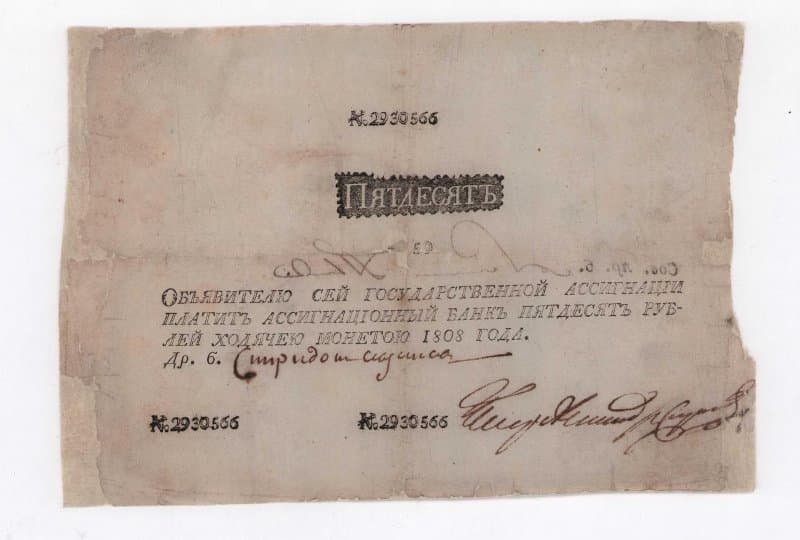 № 2930566
ПЯТДЕСЯТЪ
50
Объявителю сей государственной ассигнацiи
платитъ ассигнацiонный банкъ пятдесятъ руб-
лей ходячею монетою 1808 года.
Др. б.
№ 2930566 № 2930566